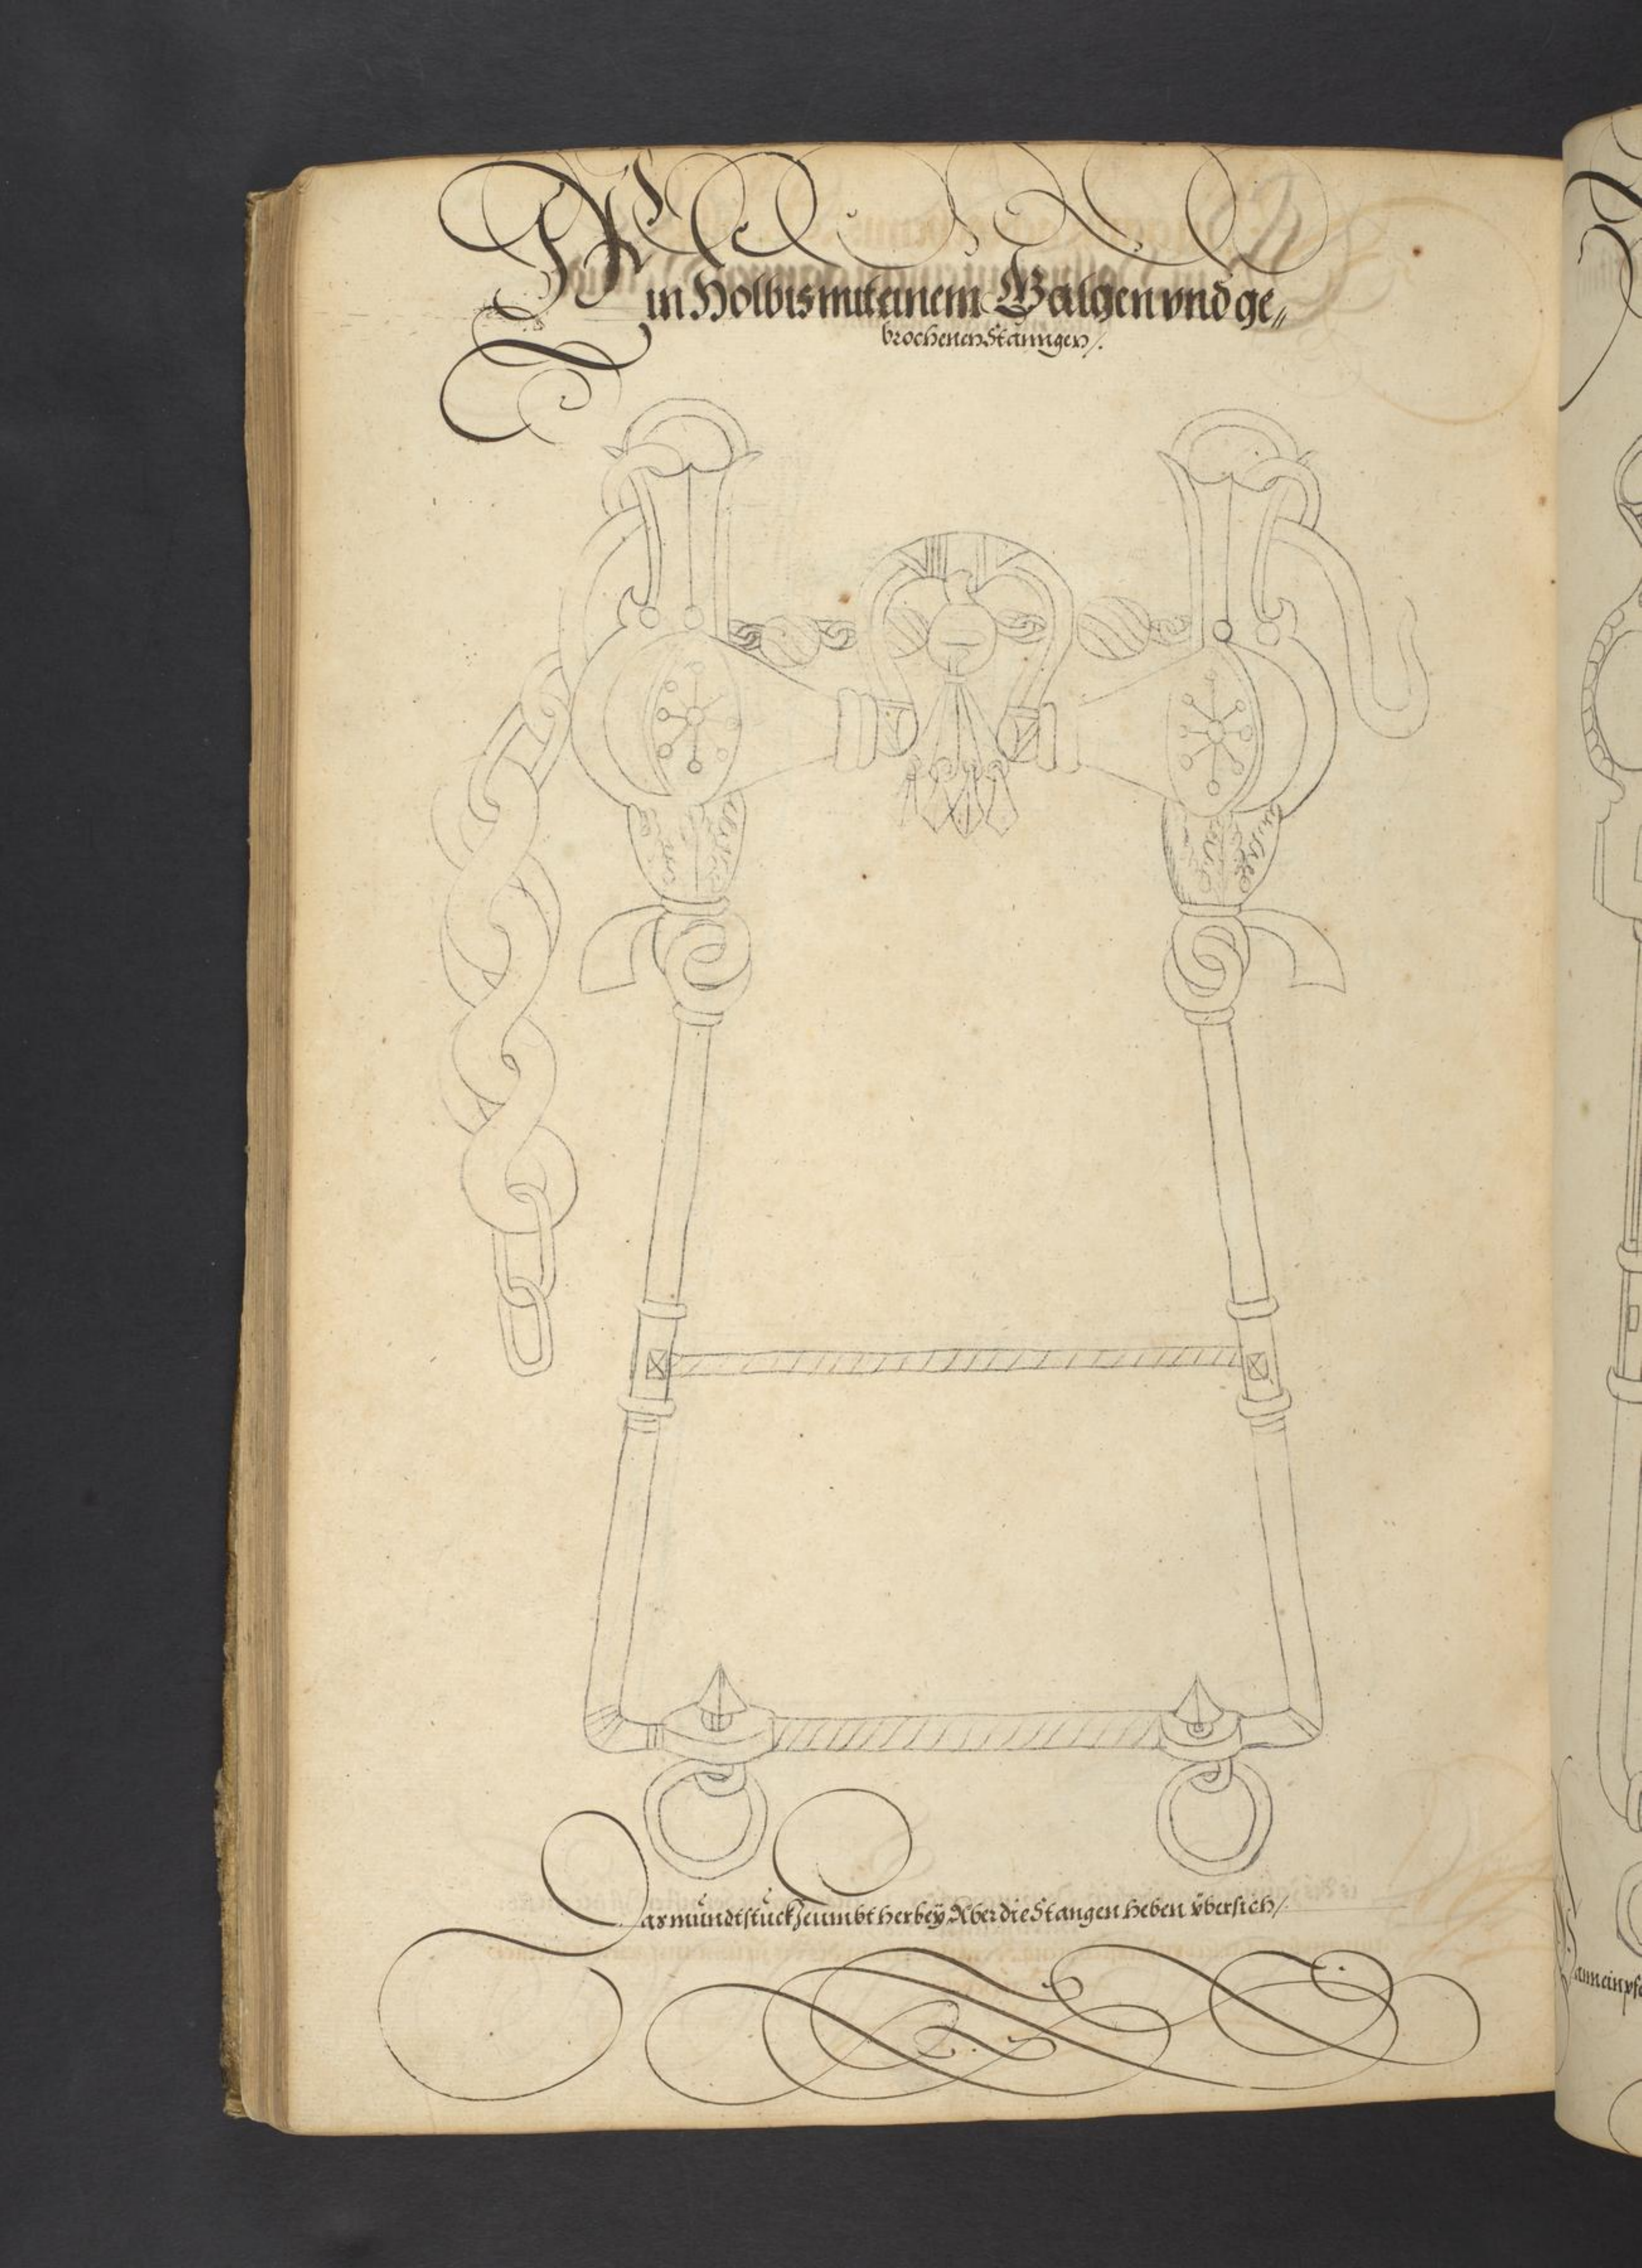 Ein Holbis mit einem Galgen vnd ge„
brochenen Stanngen/.
Das mundtstuckh zeumbt herbeÿ Aber die Stangen heben v̈bersich/